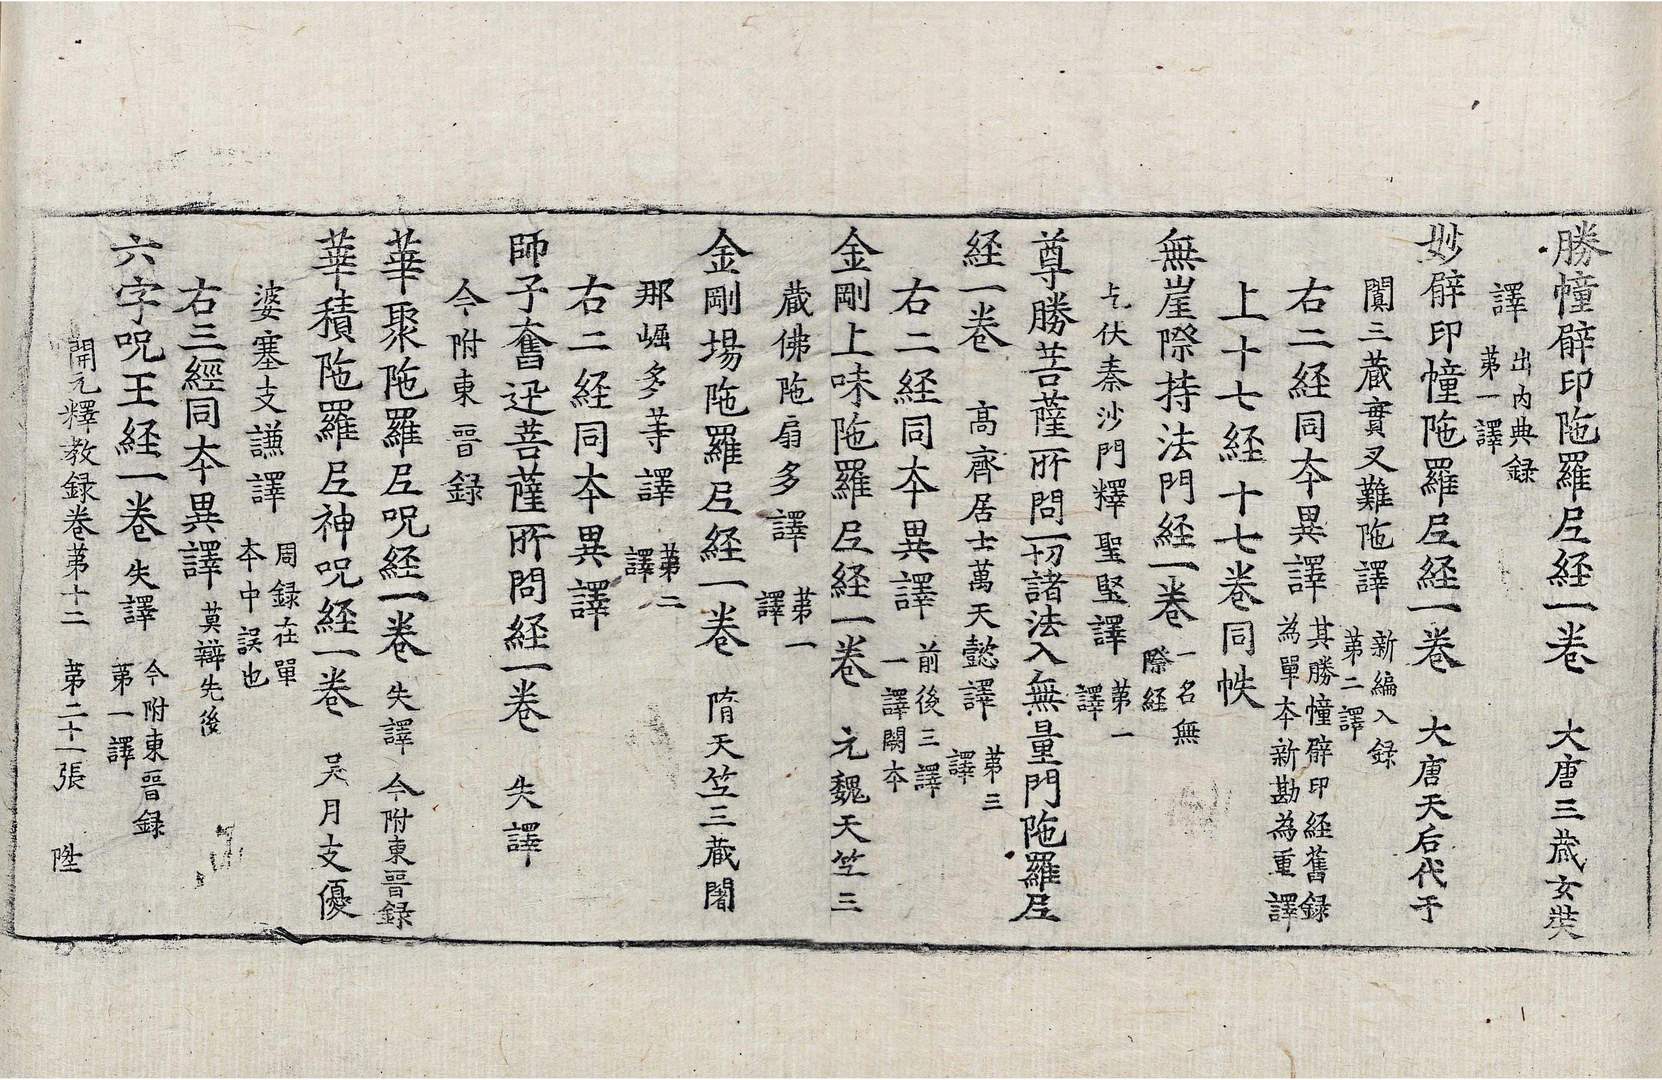 勝幢臂印陁羅尼經一卷　大唐三蔵玄奘
譯　出内典録
第一譯
妙臂印幢陁羅尼経一卷　大唐天后代于
闐三蔵實叉難陁譯　新編入録
第二譯
右二経同本異譯　其勝幢臂印経舊録
為單本新勘為重譯
上十七経十七卷同帙
無崖際持法門経一卷　一名無
際経
乞伏秦沙門釋聖堅譯　第一
譯
尊勝菩薩所問一切諸法入無量門陁羅尼
経一卷　高齊居士萬天懿譯　第三
譯
右二経同本異譯　前後三譯
一譯闕本
金剛上味陁羅尼経一卷　元魏天竺三
蔵佛陁扇多譯　第一
譯
金剛場陁羅尼経一卷　隋天竺三蔵闍
那崛多等譯　第二
譯
右二経同本異譯
師子奮迅菩薩所問経一卷　失譯
今附東晉録
華聚陁羅尼呪経一卷　失譯　今附東晉録
華積陁羅尼神呪経一卷　吴月支優
婆塞支謙譯　周録在單
本中誤也
右三經同本異譯　莫辯先後
六字呪王経一卷　失譯　今附東晉録
第一譯
開元釋教録卷第十二　第二十一張　陞